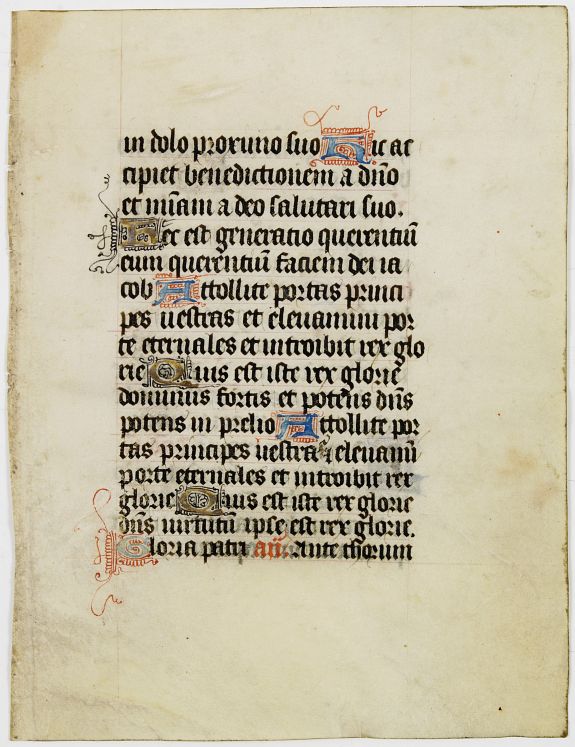 in dolo proximo suo Hic ac
cipiet benedictionem a dño
et mĩam a deo salutari suo.
Hec est generatio querentiũ
eum querentiũ faciem dei ia
cob Attollite portas princi
pes uestras et eleuamini por
te eternales et introibit rex glo
rie Quis est iste rex glorie
dominus fortis et potens dñs
potens in prelio Attollite por
tas principes uestras ⁊ eleuamĩ
porte eternales et introibit rex
glorie Quis est iste rex glorie
dñs uirtutũ ipse est rex glorie.
Gloria patri añ. Ante thorum